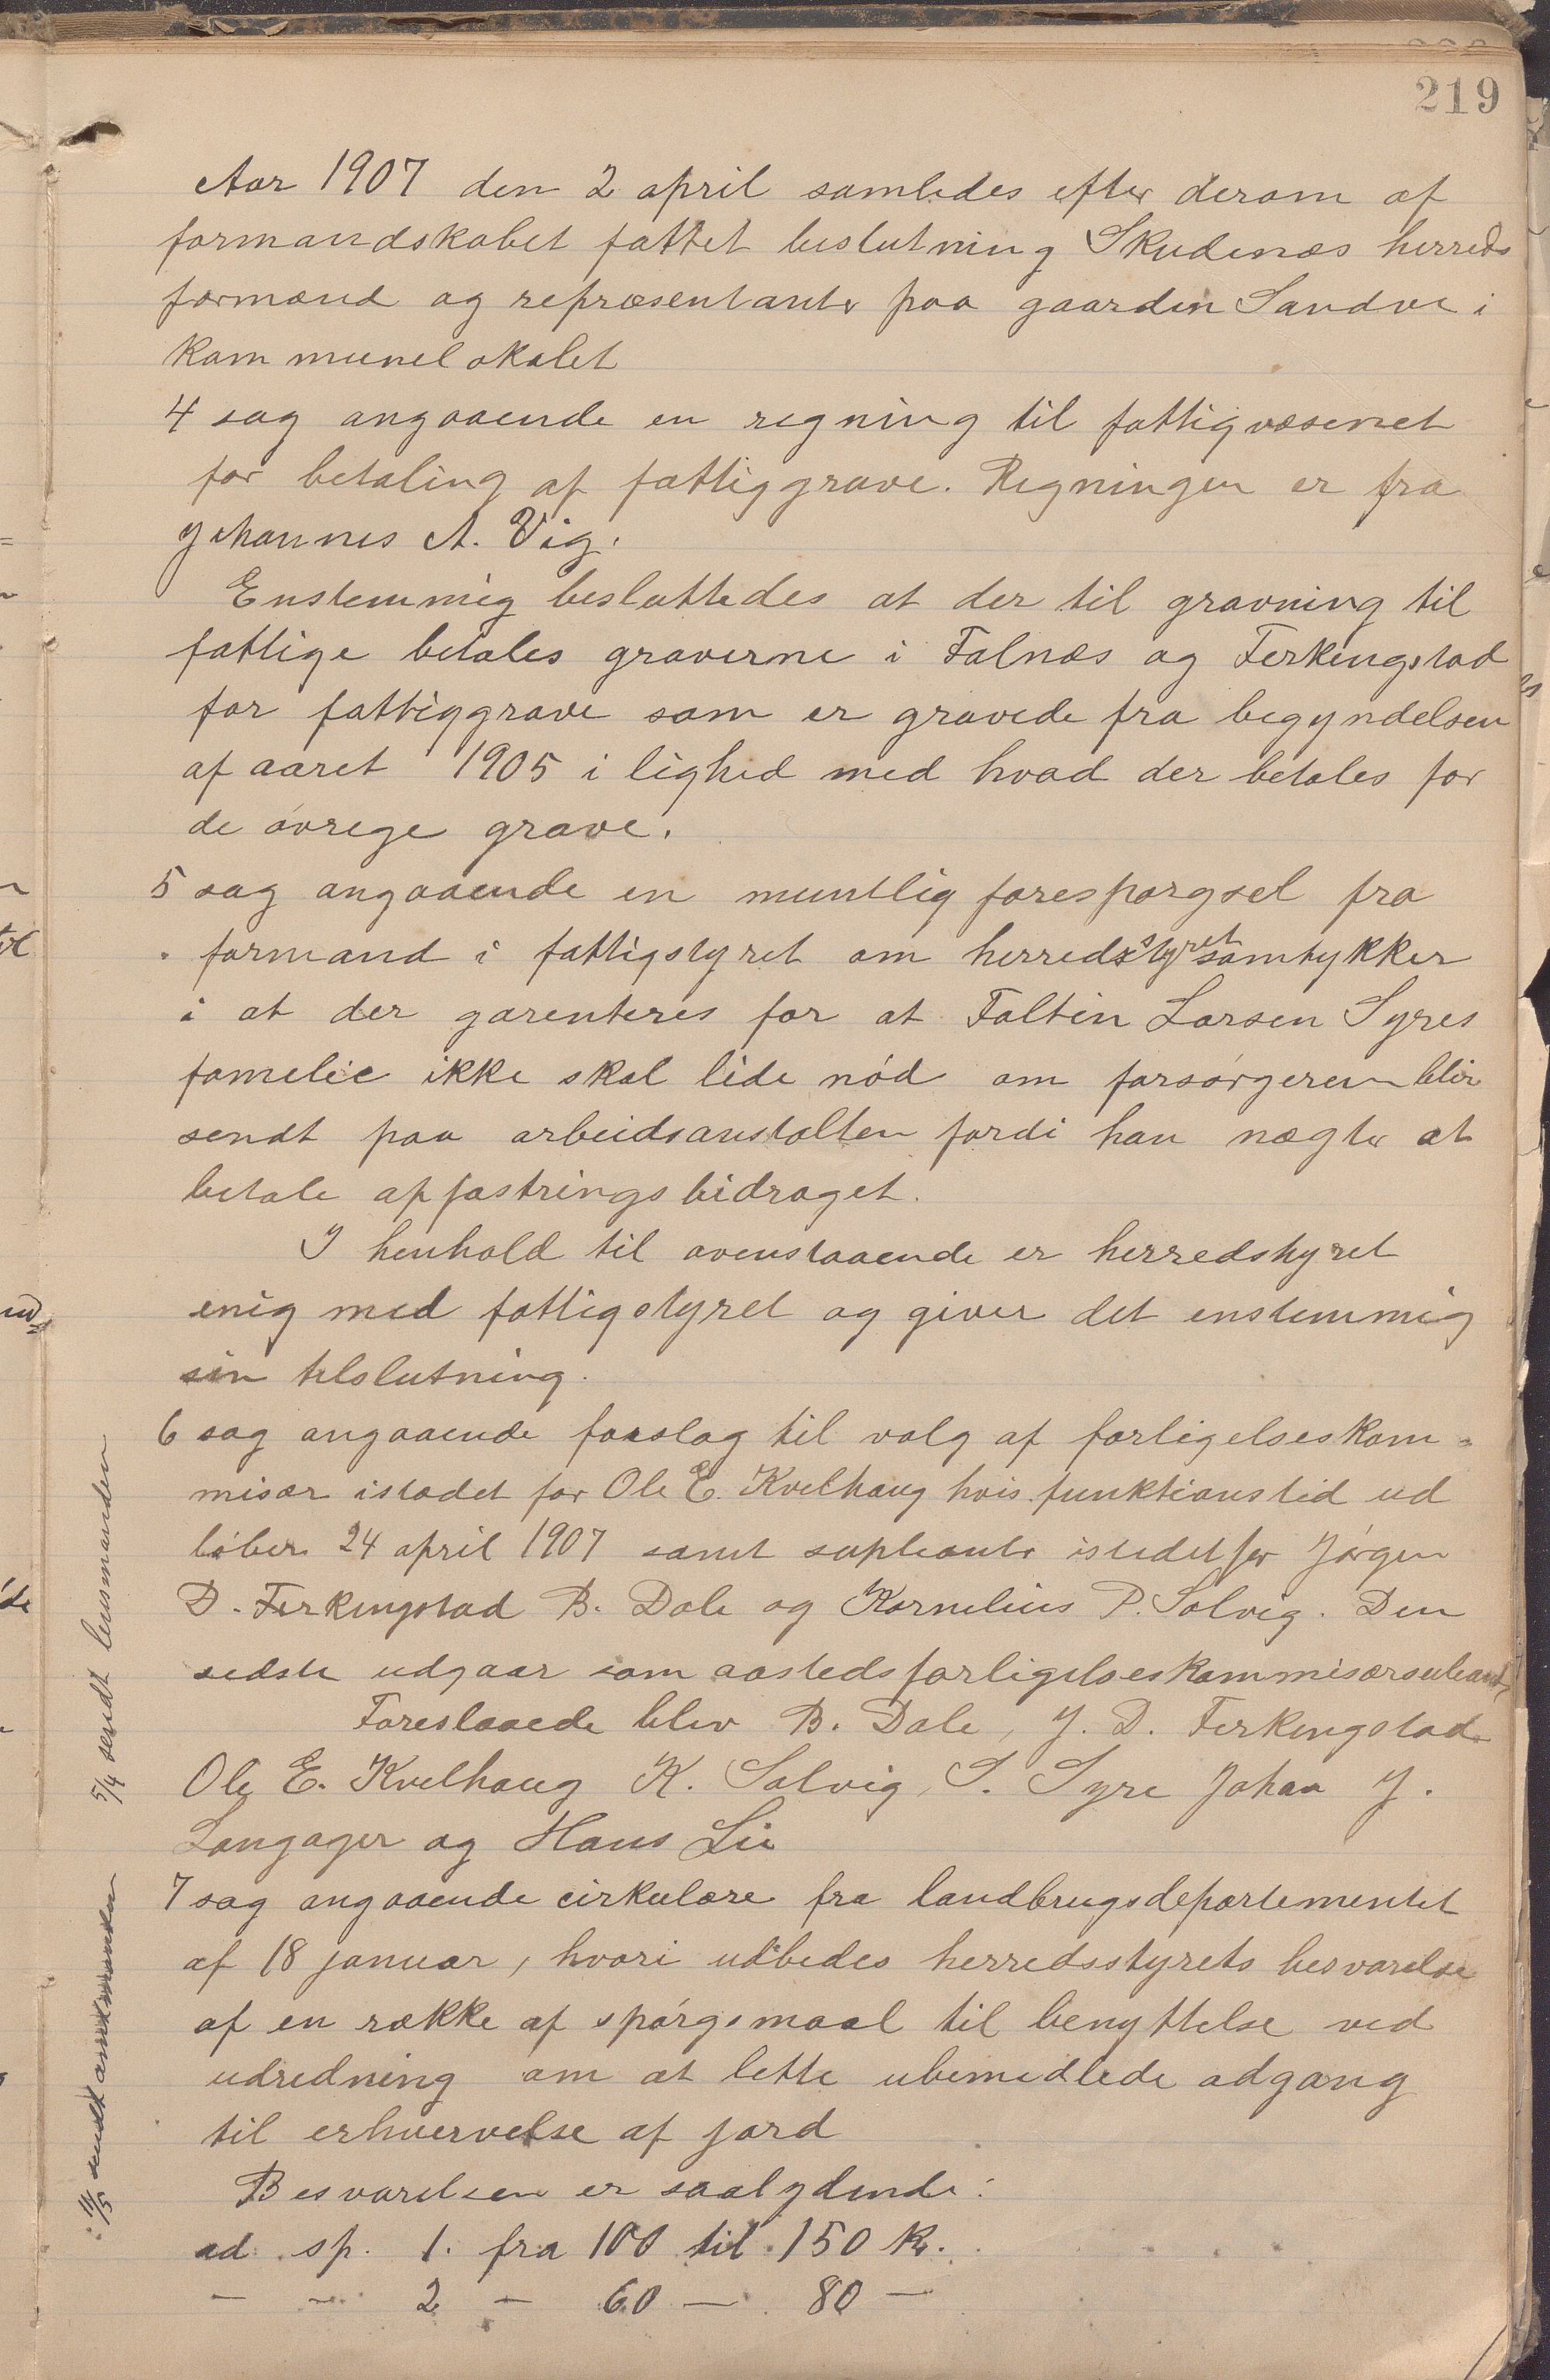 219
Aar 1907 den 2 april samledes efter derom af
formandskabet fattet beslutning Skudenæs herreds
formænd og repræsentanter paa gaarden Sandve i
kommunelokalet
4 sag angaaende en regning til fattigvæsenet
for betaling af fattiggrave. Regningen er fra
Johannes A. Vig.
Enstemmig besluttedes at der til gravning til
fattige betales graverne i Falnæs og Ferkingstad
for fattiggrave som er gravede fra begyndelsen
af aaret 1905 i lighed med hvad der betales for
de øvrege grave.
5 sag angaaende en muntlig forespørgsel fra
formand i fattigstyret om herredsstyret samtykker
i at der garenteres for at Faltin Larsen Syres
famelie ikke skal lide nød om forsørgeren blir
sendt paa arbeidsanstalten fordi han nægter at
betale opfostringsbidraget.
I henhold til ovenstaaende er herredstyret
enig med fattigstyret og giver det enstemmig
sin telslutning.
6 sag angaaende forslag til valg af forligelseskom-
misær istadet for Ole E. Kvelhaug hvis funktionstid ud
løber 24 april 1907 samt supleanter istedet for Jørgen
D. Ferkingstad B. Dale og Kornelius P. Solvig. Den
sidste udgaar som aastedsforligelseskommisær
Foreslaaede blev B. Dale, J. D. Ferkingstad
Ole E. Kvelhaug K. Solvig, S. Syre Johan J.
Langager og Hans Lie
7 sag angaaende cirkulære fra landbrugsdepartementet
af 18 januar, hvori udbedes herredsstyrets besvarelse
af en række af spørgsmaal til benyttelse ved
udredning om at lette ubemedlede adgang
til erhvervelse af jord
Besvarelsen er saalydende:
ad sp. 1. fra 100 til 150 kr.
— — 2 — 60 — 80 —
5/4 sendt lensmanden
sendt amtmanden